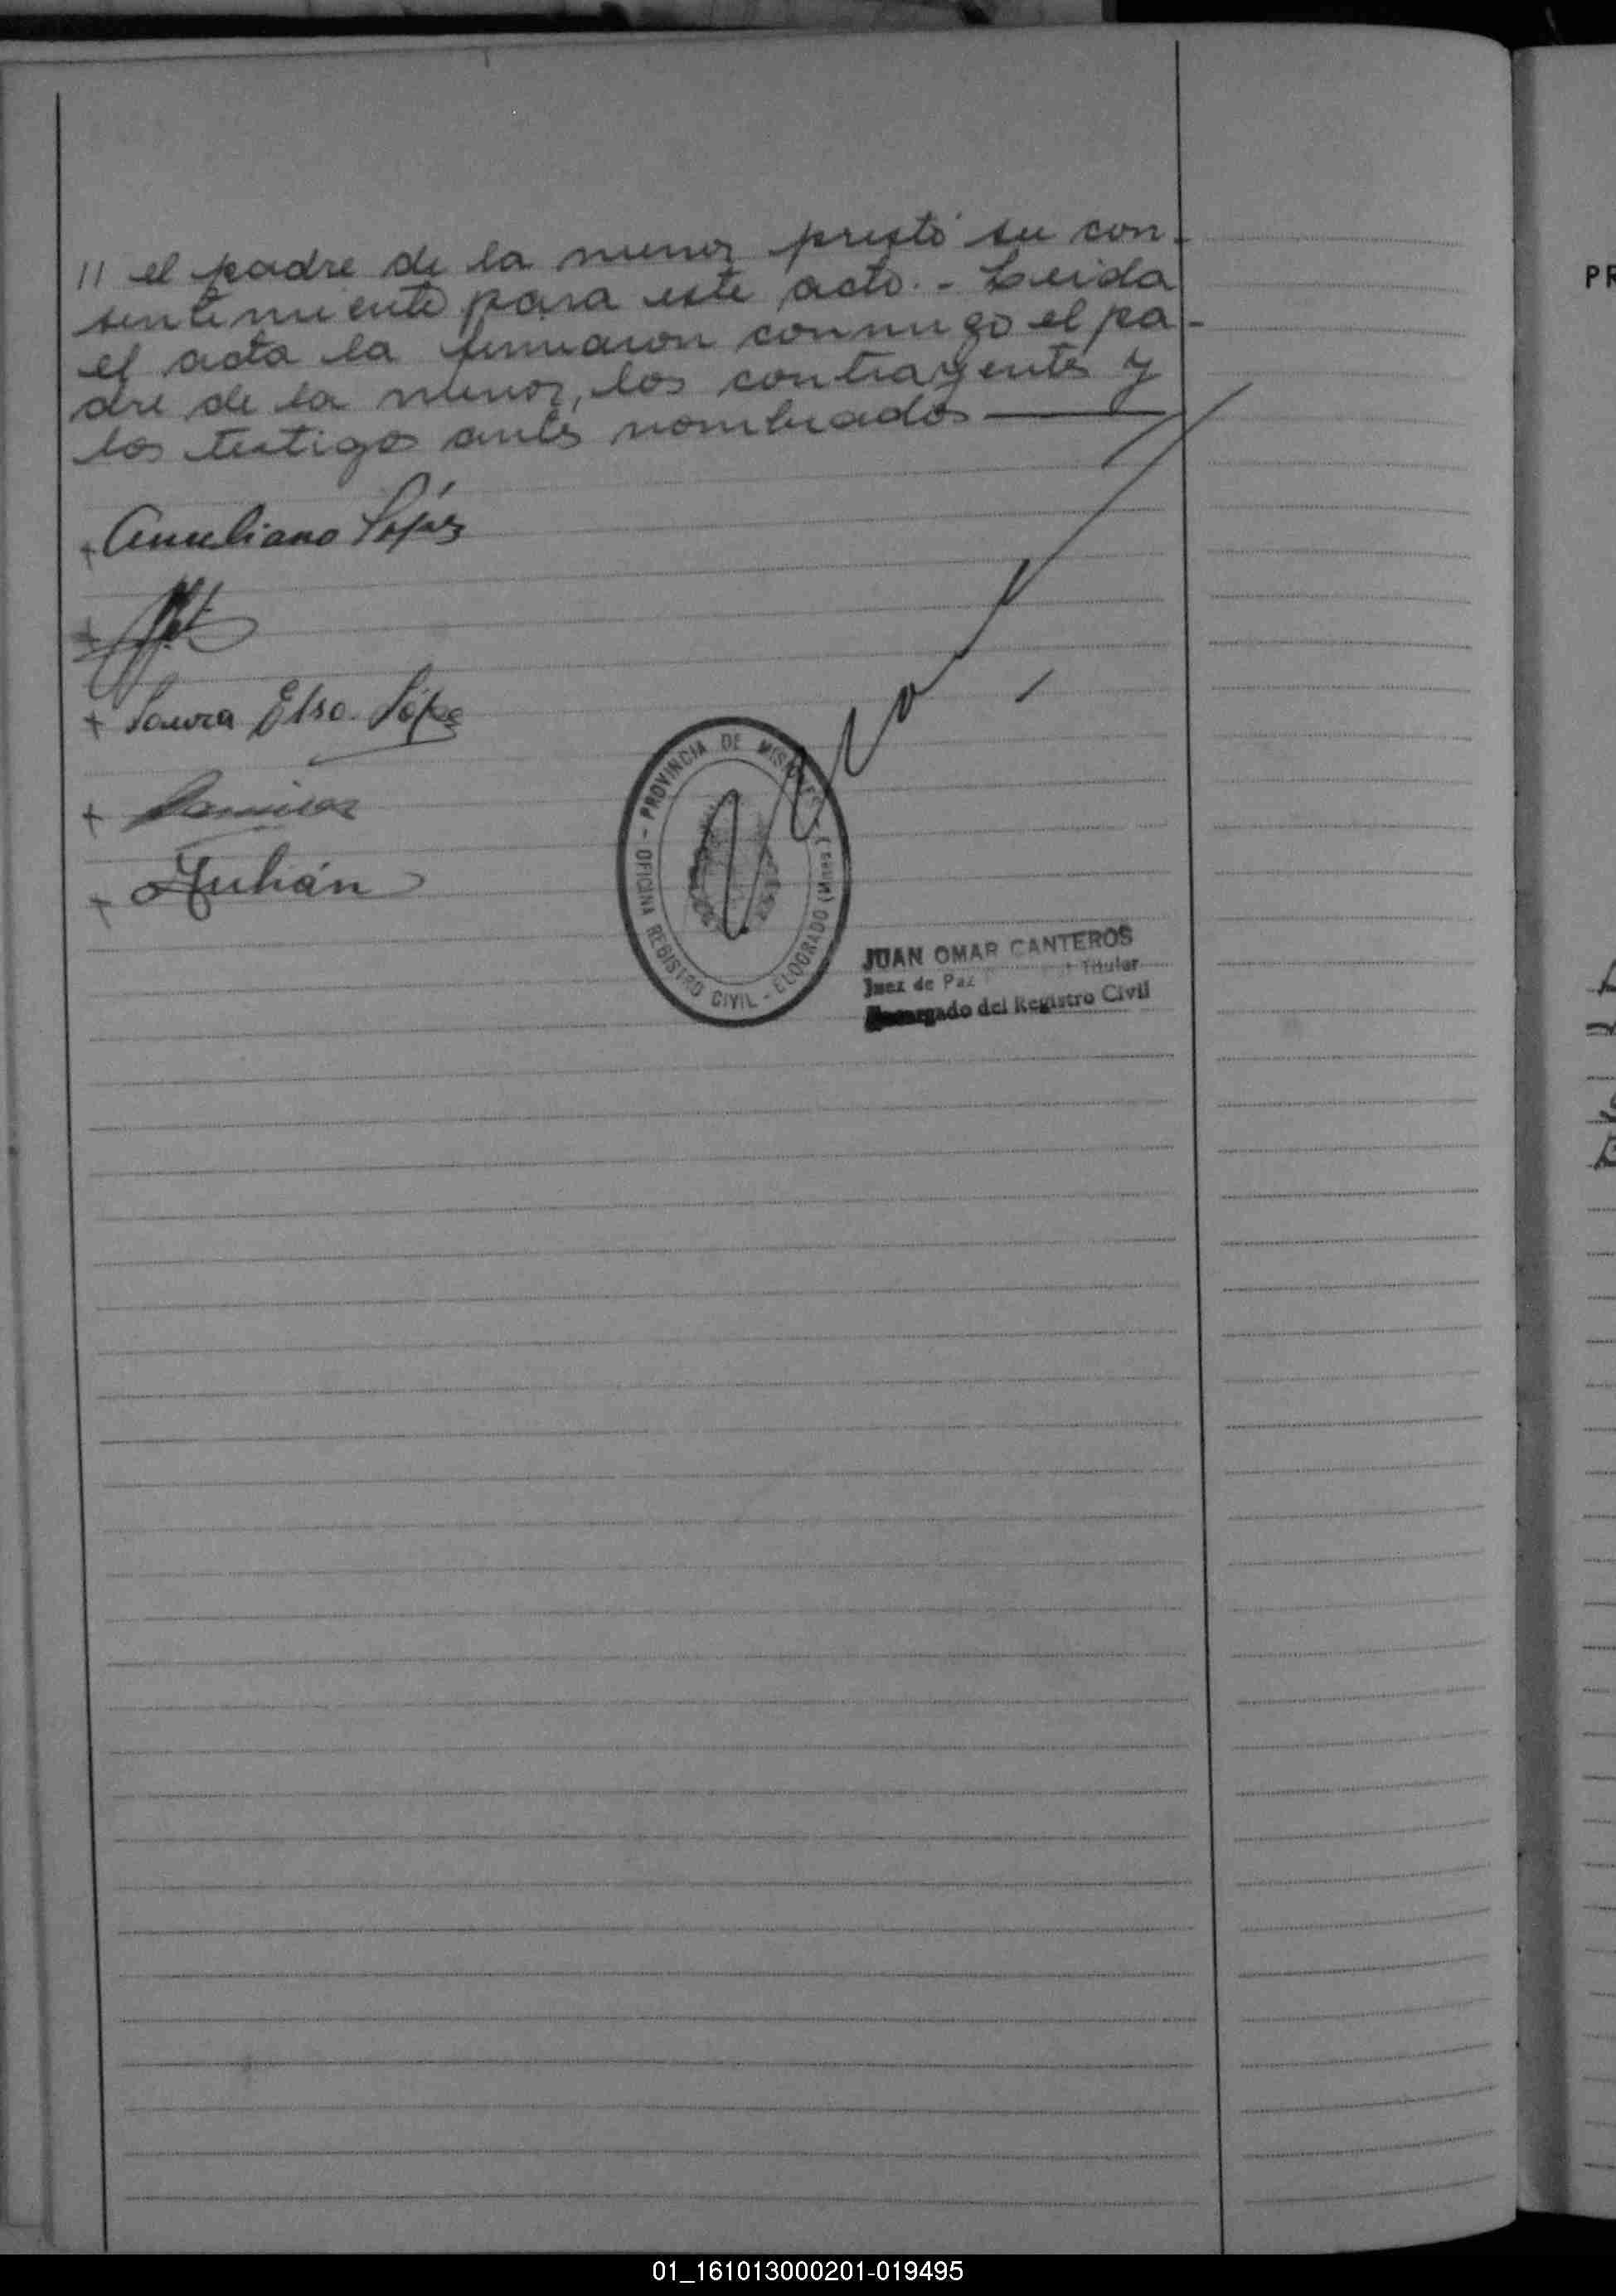 // el padre de la menor prestó su con-
sentimiento para este acto.- Leida
el acta la firmaron conmigo el pa-
dre de la menor, los contrayentes y
los testigos antes nombrados
+ Anuliano López
+ Laura Elsa López
+ Ramirez
+ Julián
- PROVINCIA DE MISIONES -
OFICINA REGISTRO CIVIL - ELDORADO (Mnes.)
JUAN OMAR CANTEROS
Juez de Paz Titular
Encargado del Registro Civil
PR
01_161013000201-019495